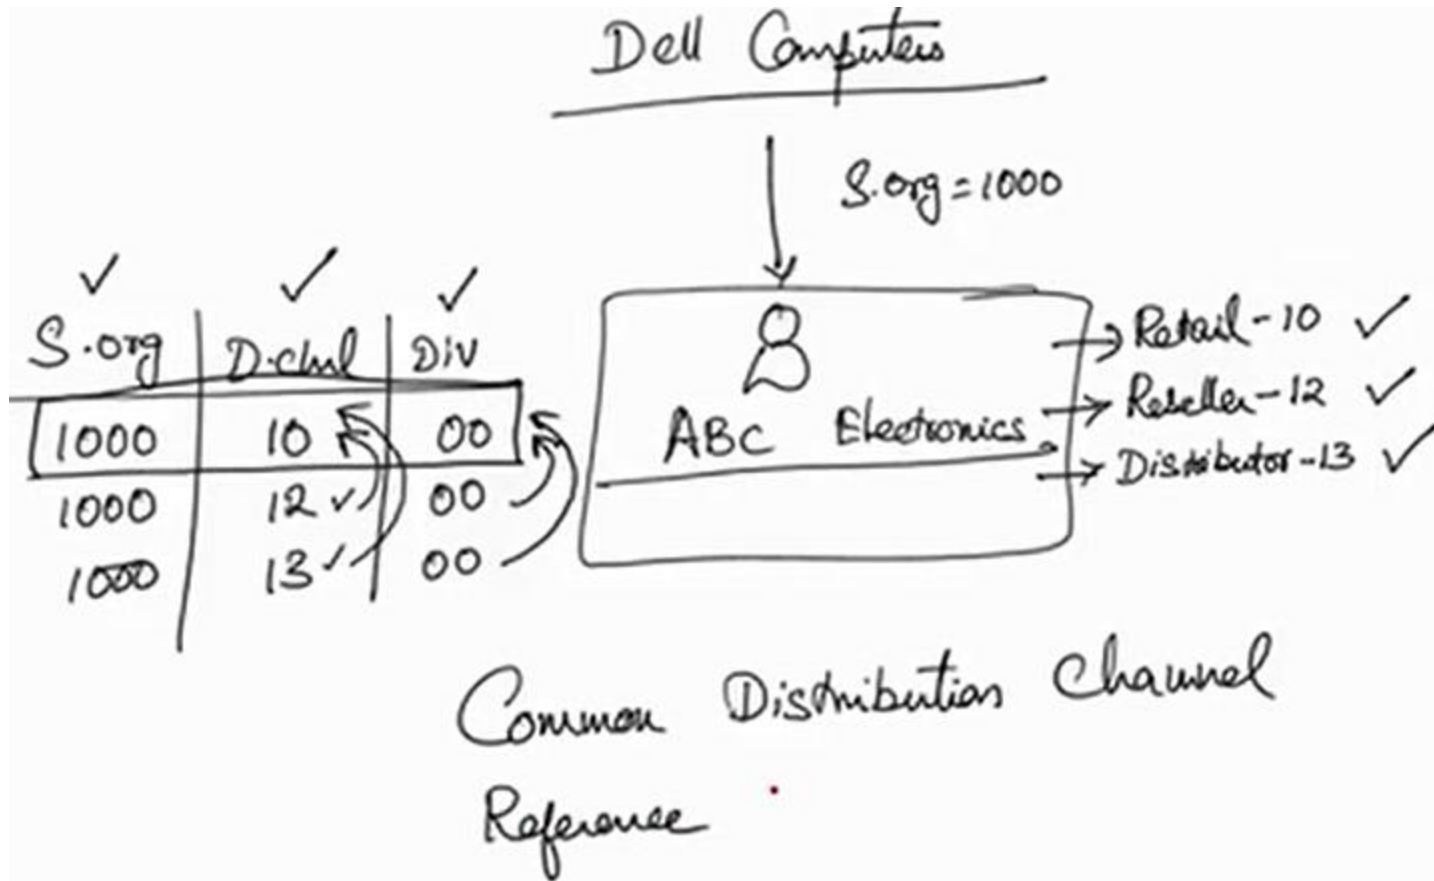 Dell Computers
S.org = 1000
S.org D.chnl Div
1000 10 00
1000 12 00
1000 13 00
ABC Electronics
Retail - 10
Reseller - 12
Distributor - 13
Common Distribution Channel
Reference